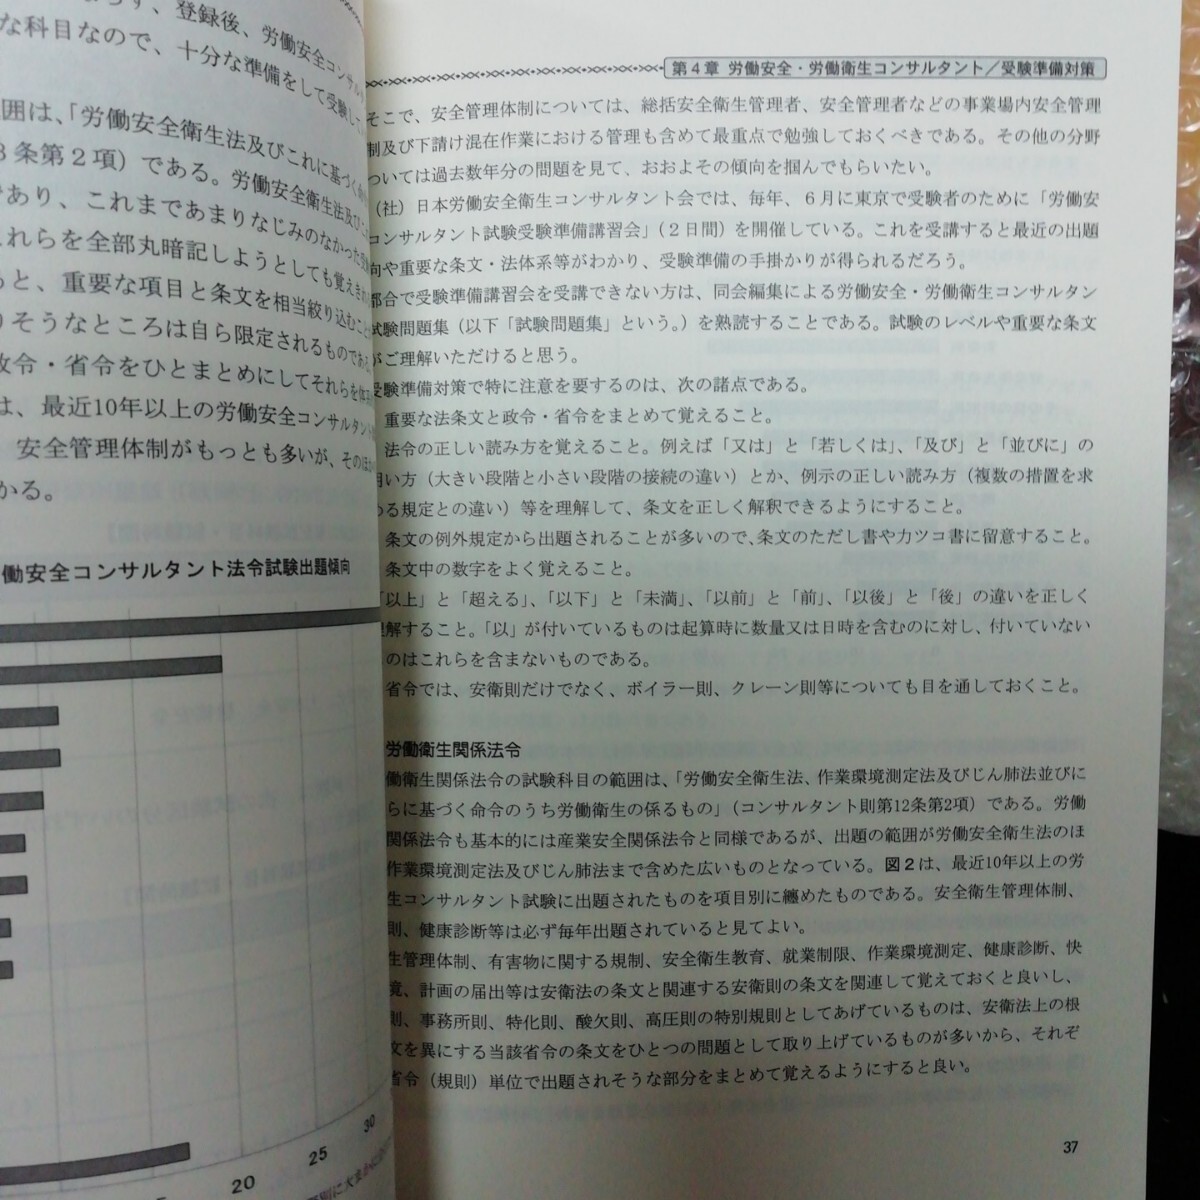 らず、登録後、労働安全コンサル
な科目なので、十分な準備をして受験し
範囲は、「労働安全衛生法及びこれに基づく
３条第２項）である。労働安全衛生法及び
であり、これまであまりなじみのなかった
これらを全部丸暗記しようとしても覚えき
ると、重要な項目と条文を相当絞り込むこと
りそうなところは自ら限定されるものである
政令・省令をひとまとめにしてそれらを
は、最近10年以上の労働安全コンサルタント
安全管理体制がもっとも多いが、そのほか
かる。
働安全コンサルタント法令試験出題傾向
20
25
30
第４章 労働安全・労働衛生コンサルタント／受験準備対策
そこで、安全管理体制については、総括安全衛生管理者、安全管理者などの事業場内安全管理
制及び下請け混在作業における管理も含めて最重点で勉強しておくべきである。その他の分野
ついては過去数年分の問題を見て、おおよその傾向を掴んでもらいたい。
（社）日本労働安全衛生コンサルタント会では、毎年、６月に東京で受験者のために「労働安
コンサルタント試験受験準備講習会」（２日間）を開催している。これを受講すると最近の出題
向や重要な条文・法体系等がわかり、受験準備の手掛かりが得られるだろう。
都合で受験準備講習会を受講できない方は、同会編集による労働安全・労働衛生コンサルタン
試験問題集（以下「試験問題集」という。）を熟読することである。試験のレベルや重要な条文
がご理解いただけると思う。
受験準備対策で特に注意を要するのは、次の諸点である。
重要な法条文と政令・省令をまとめて覚えること。
法令の正しい読み方を覚えること。例えば「又は」と「若しくは」、「及び」と「並びに」の
用い方（大きい段階と小さい段階の接続の違い）とか、例示の正しい読み方（複数の措置を求
める規定との違い）等を理解して、条文を正しく解釈できるようにすること。
条文の例外規定から出題されることが多いので、条文のただし書やカツコ書に留意すること。
条文中の数字をよく覚えること。
「以上」と「超える」、「以下」と「未満」、「以前」と「前」、「以後」と「後」の違いを正しく
理解すること。「以」が付いているものは起算時に数量又は日時を含むのに対し、付いていない
のはこれらを含まないものである。
省令では、安衛則だけでなく、ボイラー則、クレーン則等についても目を通しておくこと。
労働衛生関係法令
働衛生関係法令の試験科目の範囲は、「労働安全衛生法、作業環境測定法及びじん肺法並びに
らに基づく命令のうち労働衛生の係るもの」（コンサルタント則第12条第2項）である。労働
関係法令も基本的には産業安全関係法令と同様であるが、出題の範囲が労働安全衛生法のほ
作業環境測定法及びじん肺法まで含めた広いものとなっている。図２は、最近10年以上の労
生コンサルタント試験に出題されたものを項目別に纏めたものである。安全衛生管理体制、
則、健康診断等は必ず毎年出題されていると見てよい。
生管理体制、有害物に関する規制、安全衛生教育、就業制限、作業環境測定、健康診断、快
境、計画の届出等は安衛法の条文と関連する安衛則の条文を関連して覚えておくと良いし、
則、事務所則、特化則、酸欠則、高圧則の特別規則としてあげているものは、安衛法上の根
文を異にする当該省令の条文をひとつの問題として取り上げているものが多いから、それぞ
省令（規則）単位で出題されそうな部分をまとめて覚えるようにすると良い。
37